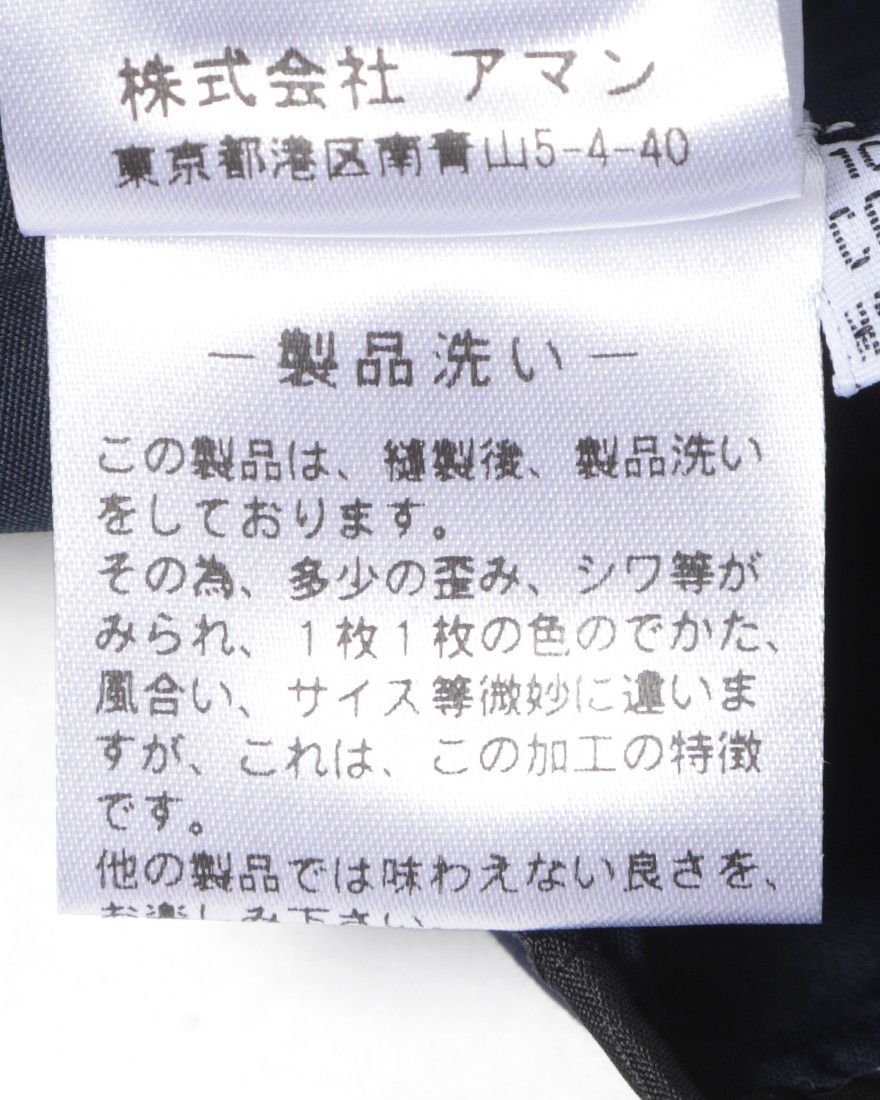 株式会社 アマン
東京都港区南青山5-4-40
－製品洗い－
この製品は、縫製後、製品洗い
をしております。
その為、多少の歪み、シワ等が
みられ、1枚1枚の色のでかた、
風合い、サイズ等微妙に違いま
すが、これは、この加工の特徴
です。
他の製品では味わえない良さを、
お楽しみ下さい